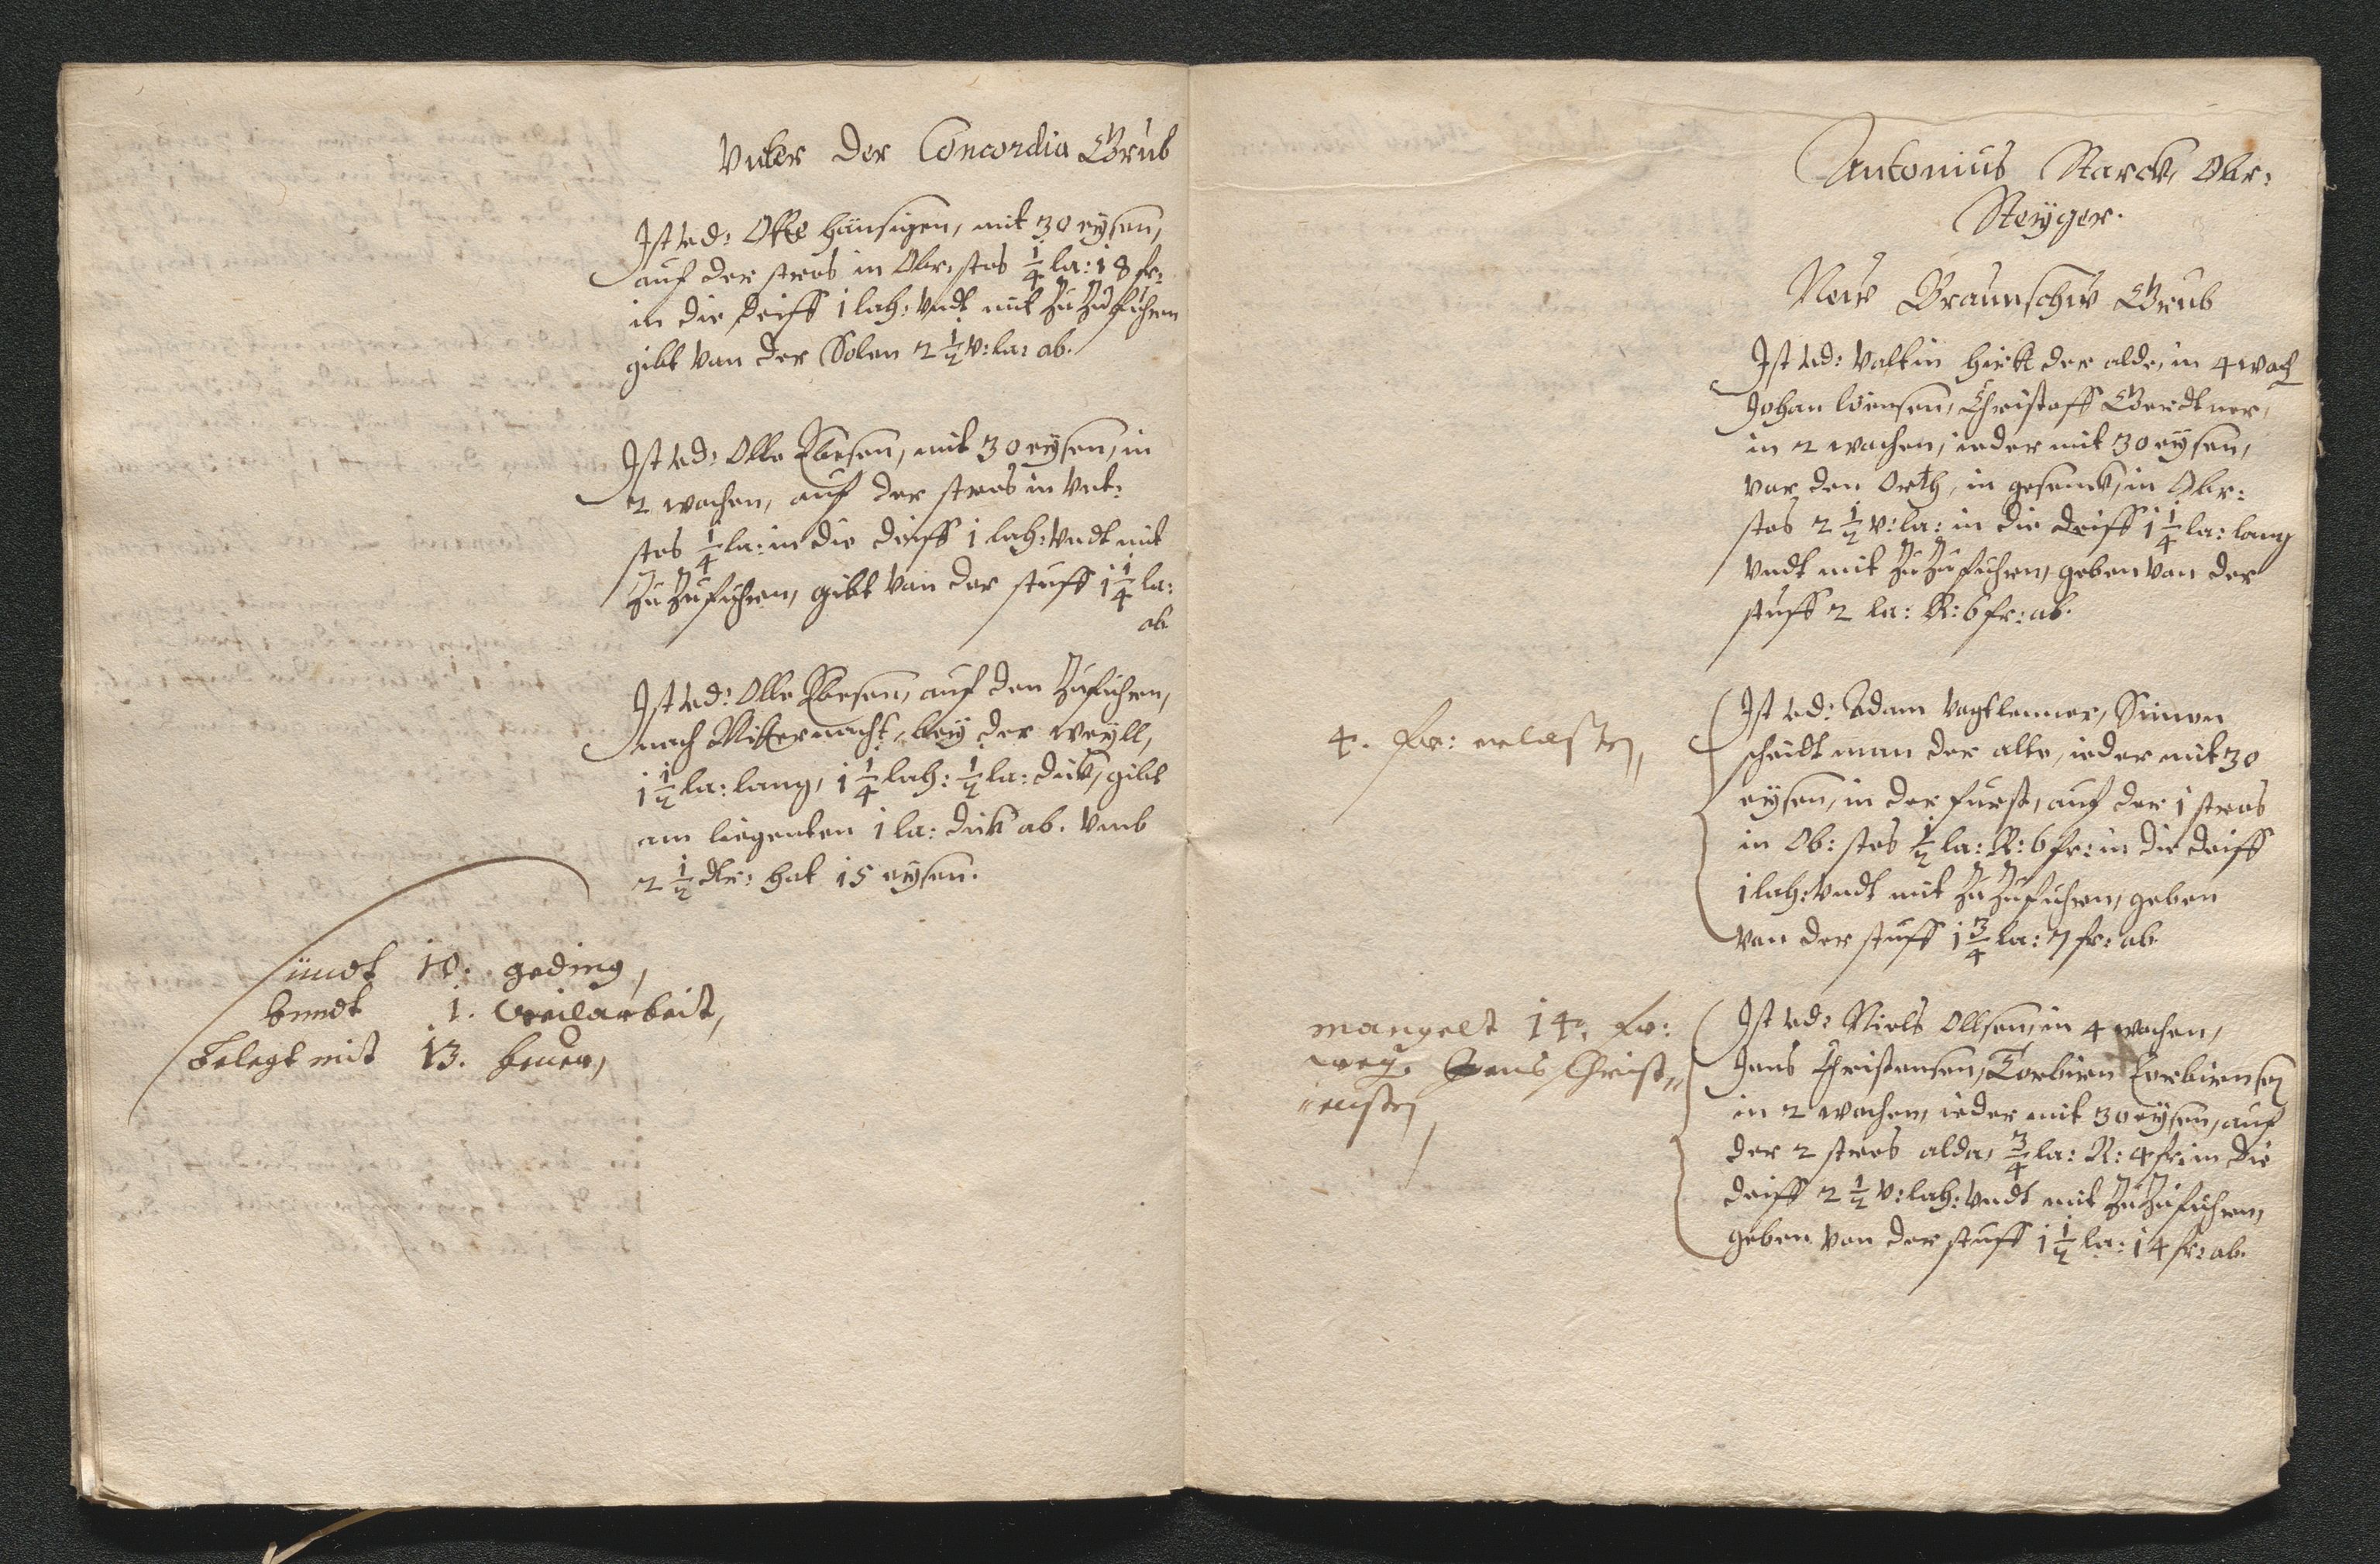 Vnter der Concordia Grub
Ist ver: Olle hansigen, mit 30 eysen,
auf der stros in Obr: stos 1/4 la: 18 fr:
in die deiff 1 lah: vndt mit Zu Zufuhren
gibt van der Solen 2 1/2 v: la: ab.
Ist ver: Olle Ebesen, mit 30 eysen, in
2 wochen, auf der stros in vnt:
stos 1/4 la: in die deiff 1 lah: vndt mit
Zu Zufuhren, gibt van der stuff 1 1/4 la:
ab
Ist ver: Olle Ebesen, auf den Zufuhren,
nach Mitternacht, bey der weyll,
1 1/2 la: lang, 1 1/4 lah: 1/2 la: dick, gibt
am liegenten 1 la: dick ab. vmb
2 1/2 dlr: hat 15 eysen.
sindt 10. geding,
vnndt 1. Weilarbeit,
belegt mit 13. heuer,
Antonius Starck, Obr:
Steyger.
New Braunschw Grub
Ist ver: Valtin hirtt der alde, in 4 woch
Johan lorensen, Christoff Gerdtner,
in 2 wochen, ieder mit 30 eysen,
var den Orth, in gesenck, in Obr:
stos 2 1/2 v: la: in die deiff 1 1/4 la: lang
vndt mit Zu Zufuhren, geben van der
stuff 2 la: R: 6 fr: ab.
4. fr: erlassen,
Ist ver: Adam Vogtlenner, Simon
scheidtman der alte, ieder mit 30
eysen, in der furst, auf der 1 stros
in Ob: stos 1/2 la: R: 6 fr: in die deiff
1 lah: vndt mit Zu Zufuhren, geben
van der stuff 1 3/4 la: 7 fr: ab
mangelt 14. fr:
weg. Jens Christ„
„ensen,
Ist ver: Niels Ollsen, in 4 wochen,
Jens Christensen, Torbiren Torbirensen
in 2 wochen, ieder mit 30 eysen, auf
der 2 stros alda, 3/4 la: R: 4 fr: in die
deiff 2 1/2 v: lah: vndt mit Zu Zufuhren,
geben van der stuff 1 1/2 la: 14 fr: ab.